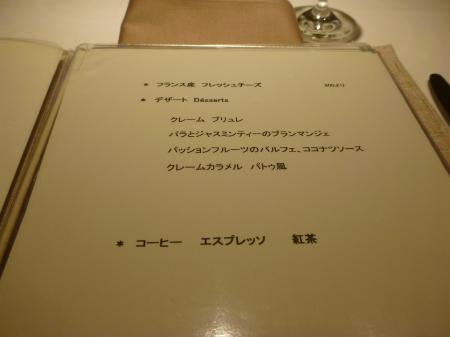 * フランス産 フレッシュチーズ
* デザート Désserts
クレーム ブリュレ
バラとジャスミンティーのブランマンジェ
パッションフルーツのパルフェ、ココナツソース
クレームカラメル パトゥ風
* コーヒー エスプレッソ 紅茶